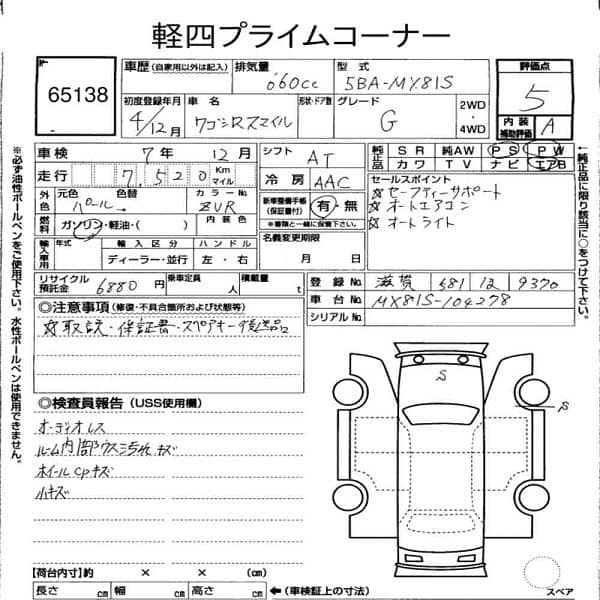 軽四プライムコーナー
65138
車歴 (自家用以外は記入)
排気量 660cc
型式 5BA-MX81S
評価点 5
内装補助評価 A
初度登録年月 4/12月
車名 ワゴンRスマイル
形状・ドア数
グレード G
2WD・4WD
車検 7年 12月
シフト AT
純正品 SR 純AW PS PW
カワ TV ナビ エアB
走行 7,520 Km マイル
冷房 AAC
セールスポイント
☆セーフティーサポート
☆オートエアコン
☆オートライト
外色 元色 色替 パール
カラーNo. ZVR
新車整備手帳(保証書付) 有・無
※書類と一緒に保管下さい。
燃料 ガソリン・軽油・( )
内装色
名義変更期限 月 日
輸入車用 年式 輸入区分 ハンドル
ディーラー・並行 左・右
リサイクル預託金 6880円
乗車定員 人
積載量 t
登録No. 滋賀 581 り 9370
車台No. MX81S-104278
シリアルNo.
◎注意事項 (修復・不具合箇所および状態等)
☆取説・保証書・スペアキー後送品
◎検査員報告 (USS使用欄)
オーディオレス
ルーム内部ウス汚れキズ
ホイールCPキズ
小キズ
S
S
【荷台内寸】約 × × (cm)
長さ cm 幅 cm 高さ cm
←(車検証上の寸法)
スペア
※必ず油性ボールペンをご使用下さい。水性ボールペンは使用できません。
←純正品に限り該当に○をつけて下さい。